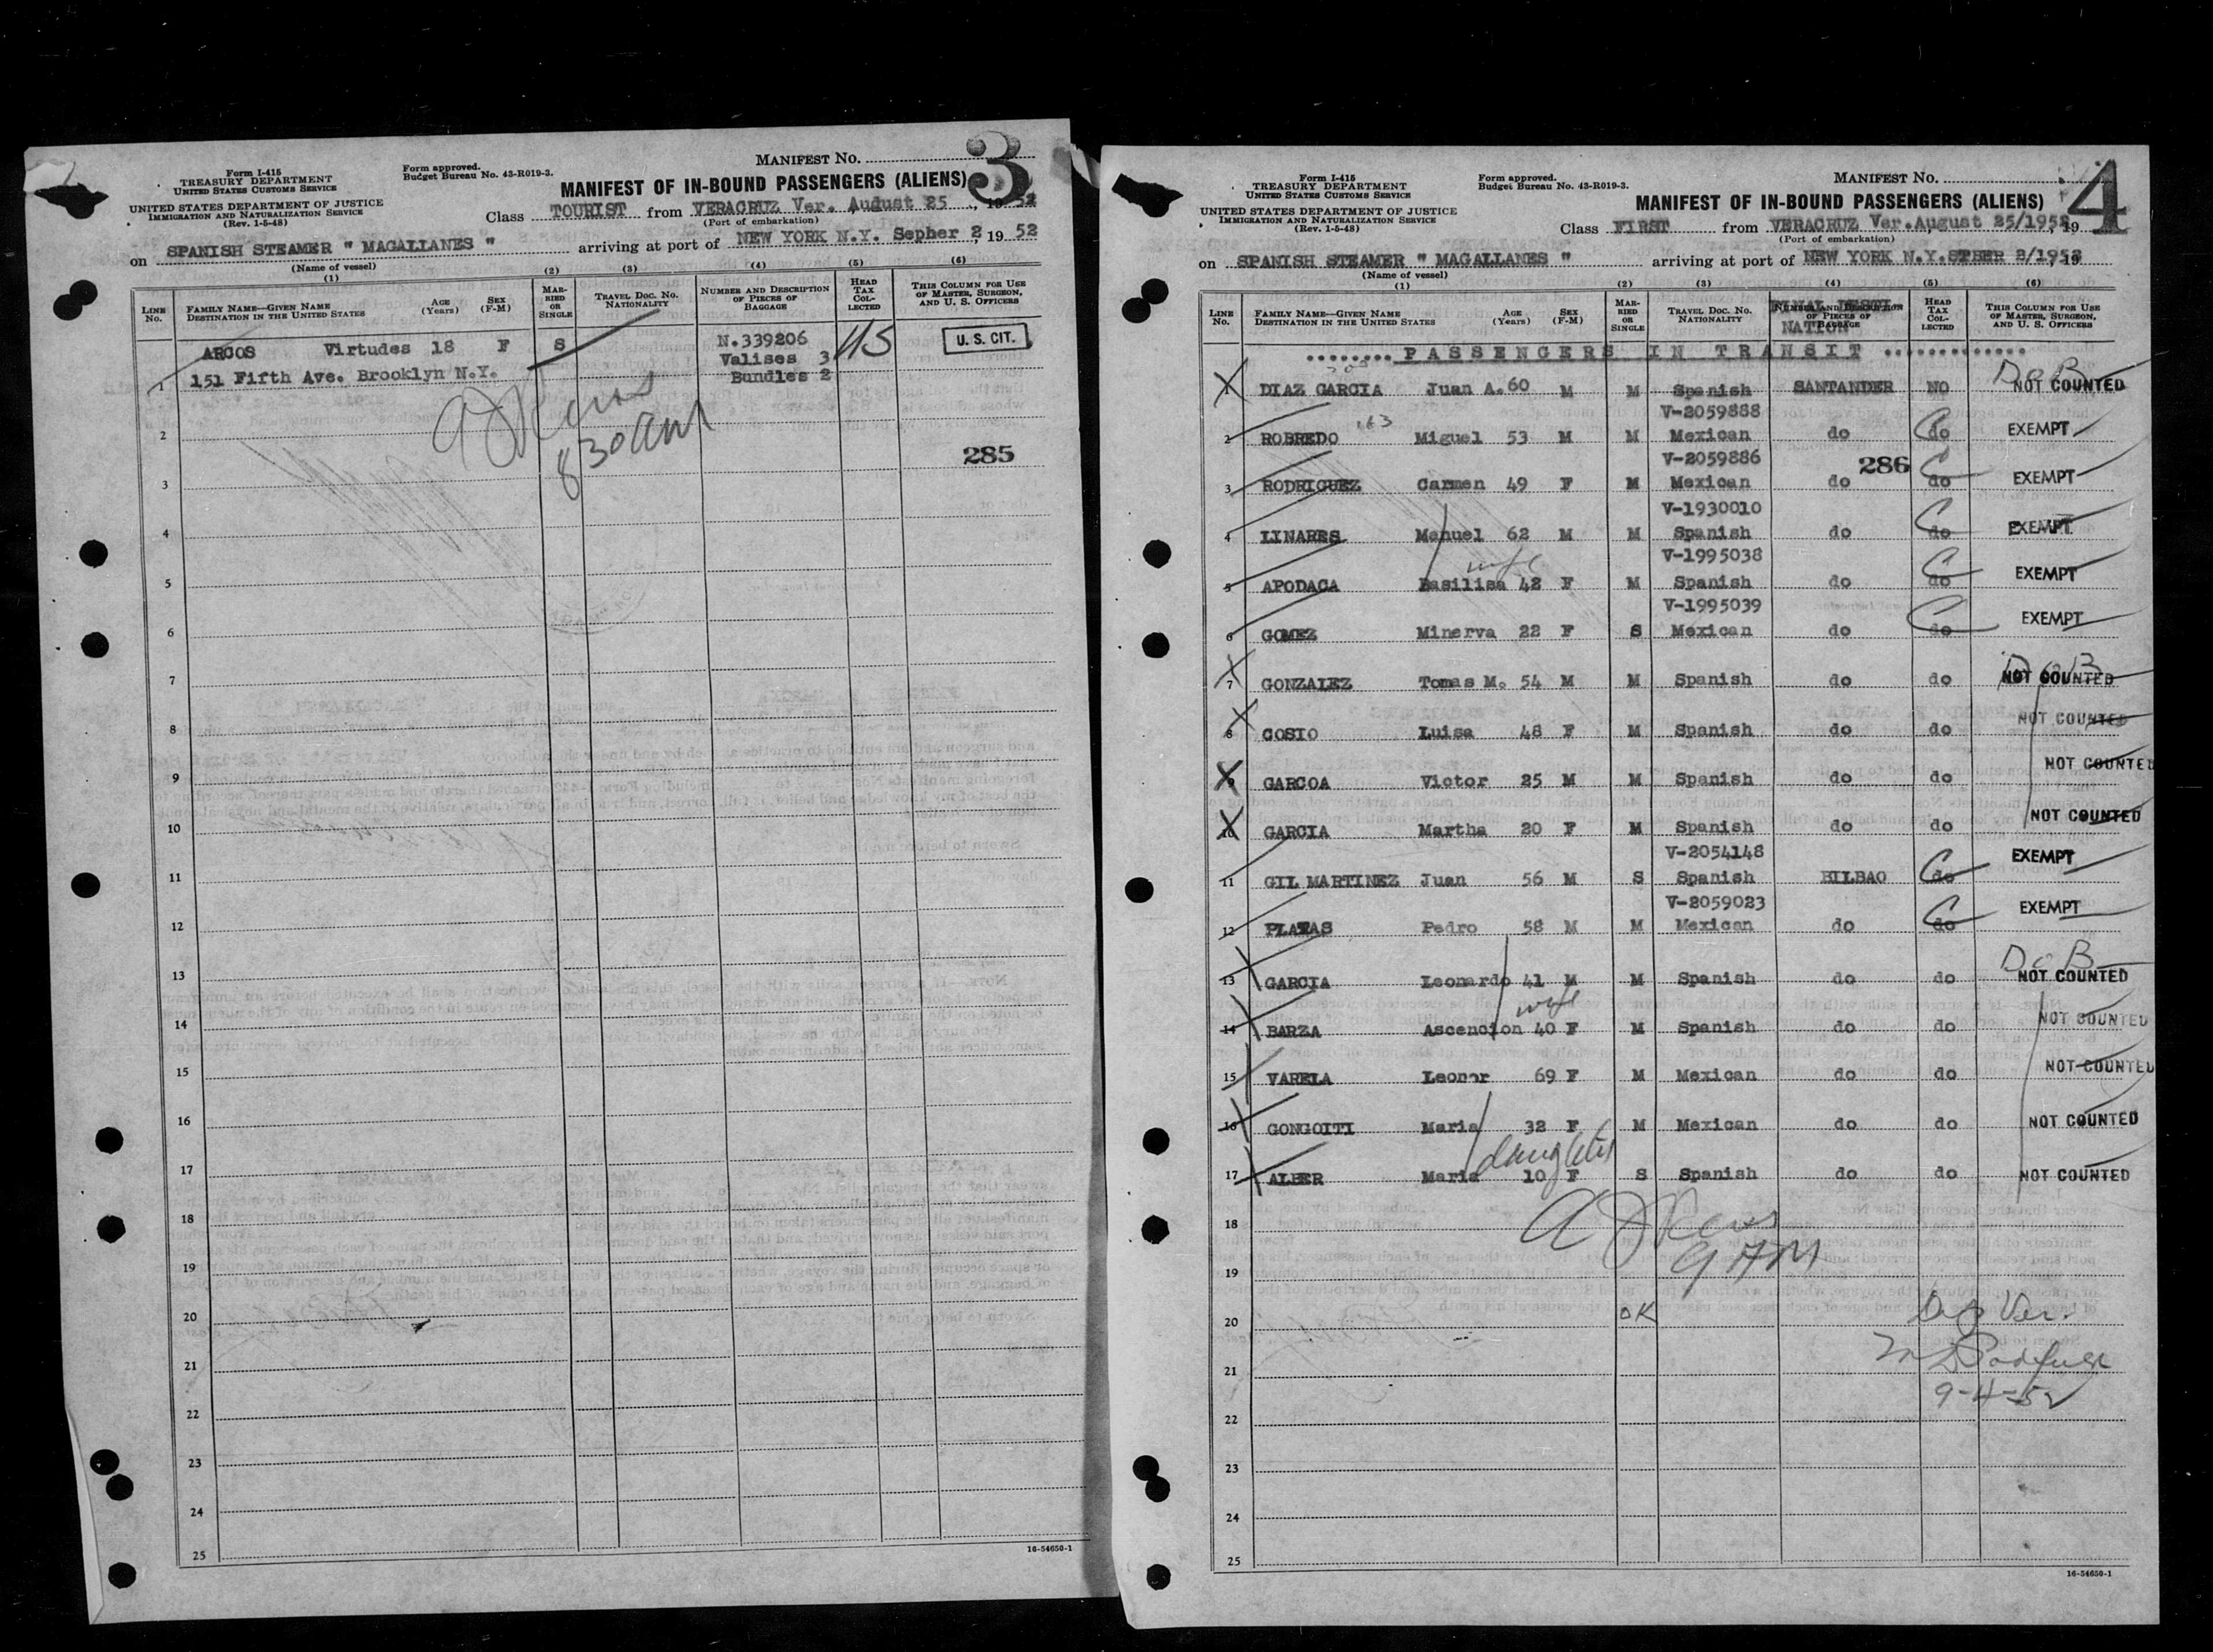 MANIFEST NO. 3
Form I-415
TREASURY DEPARTMENT
UNITED STATES CUSTOMS SERVICE
Form approved.
Budget Bureau No. 43-R019-3.
UNITED STATES DEPARTMENT OF JUSTICE
IMMIGRATION AND NATURALIZATION SERVICE
(Rev. 1-5-48)
MANIFEST OF IN-BOUND PASSENGERS (ALIENS)
Class TOURIST from VERACRUZ Ver. August 25, 1952
(Port of embarkation)
on SPANISH STEAMER " MAGALLANES " arriving at port of NEW YORK N.Y. Sepber 2, 1952
(Name of vessel)
(1) (2) (3) (4) (5) (6)
LINE No. FAMILY NAME—GIVEN NAME DESTINATION IN THE UNITED STATES AGE (Years) SEX (F-M) MARRIED OR SINGLE TRAVEL DOC. NO. NATIONALITY NUMBER AND DESCRIPTION OF PIECES OF BAGGAGE HEAD TAX COLLECTED THIS COLUMN FOR USE OF MASTER, SURGEON, AND U. S. OFFICERS
ARCOS Virtudes 18 F S N.339206 U. S. CIT.
Valises 3
1 151 Fifth Ave. Brooklyn N.Y. Bundles 2
8 30 AM
2
285
3
4
5
6
7
8
9
10
11
12
13
14
15
16
17
18
19
20
21
22
23
24
25
16-54650-1
MANIFEST NO. 4
Form I-415
TREASURY DEPARTMENT
UNITED STATES CUSTOMS SERVICE
Form approved.
Budget Bureau No. 43-R019-3.
UNITED STATES DEPARTMENT OF JUSTICE
IMMIGRATION AND NATURALIZATION SERVICE
(Rev. 1-5-48)
MANIFEST OF IN-BOUND PASSENGERS (ALIENS)
Class FIRST from VERACRUZ Ver.August 25/1952 19
(Port of embarkation)
on SPANISH STEAMER " MAGALLANES " arriving at port of NEW YORK N.Y.SPBER 2/1952 19
(Name of vessel)
(1) (2) (3) (4) (5) (6)
LINE No. FAMILY NAME—GIVEN NAME DESTINATION IN THE UNITED STATES AGE (Years) SEX (F-M) MARRIED OR SINGLE TRAVEL DOC. NO. NATIONALITY FINAL DESTINATION NUMBER AND DESCRIPTION OF PIECES OF BAGGAGE HEAD TAX COLLECTED THIS COLUMN FOR USE OF MASTER, SURGEON, AND U. S. OFFICERS
........ PASSENGERS IN TRANSIT ............
1 DIAZ GARCIA Juan A. 60 M M Spanish SANTANDER NO DoB NOT COUNTED
V-2059888
2 ROBREDO Miguel 53 M M Mexican do do EXEMPT
V-2059886 286
3 RODRIGUEZ Carmen 49 F M Mexican do do EXEMPT
V-1930010
4 LINARES Manuel 62 M M Spanish do do EXEMPT
wife V-1995038
5 APODACA Basilisa 42 F M Spanish do do EXEMPT
V-1995039
6 GOMEZ Minerva 22 F S Mexican do do EXEMPT
7 GONZALEZ Tomas M. 54 M M Spanish do do DoB NOT COUNTED
8 COSIO Luisa 48 F M Spanish do do NOT COUNTED
9 GARCOA Victor 25 M M Spanish do do NOT COUNTED
10 GARCIA Martha 20 F M Spanish do do NOT COUNTED
V-2054148
11 GIL MARTINEZ Juan 56 M S Spanish BILBAO do EXEMPT
V-2059023
12 PLATAS Pedro 58 M M Mexican do do EXEMPT
13 GARCIA Leonardo 41 M M Spanish do do DoB NOT COUNTED
wife
14 BARZA Ascencion 40 F M Spanish do do NOT COUNTED
15 VARELA Leonor 69 F M Mexican do do NOT COUNTED
16 GONGOITI Maria 32 F M Mexican do do NOT COUNTED
daughter
17 ALBER Maria 10 F S Spanish do do NOT COUNTED
18
9 AM
19
20 OK Dep Ver.
21
9-4-52
22
23
24
25
16-54650-1